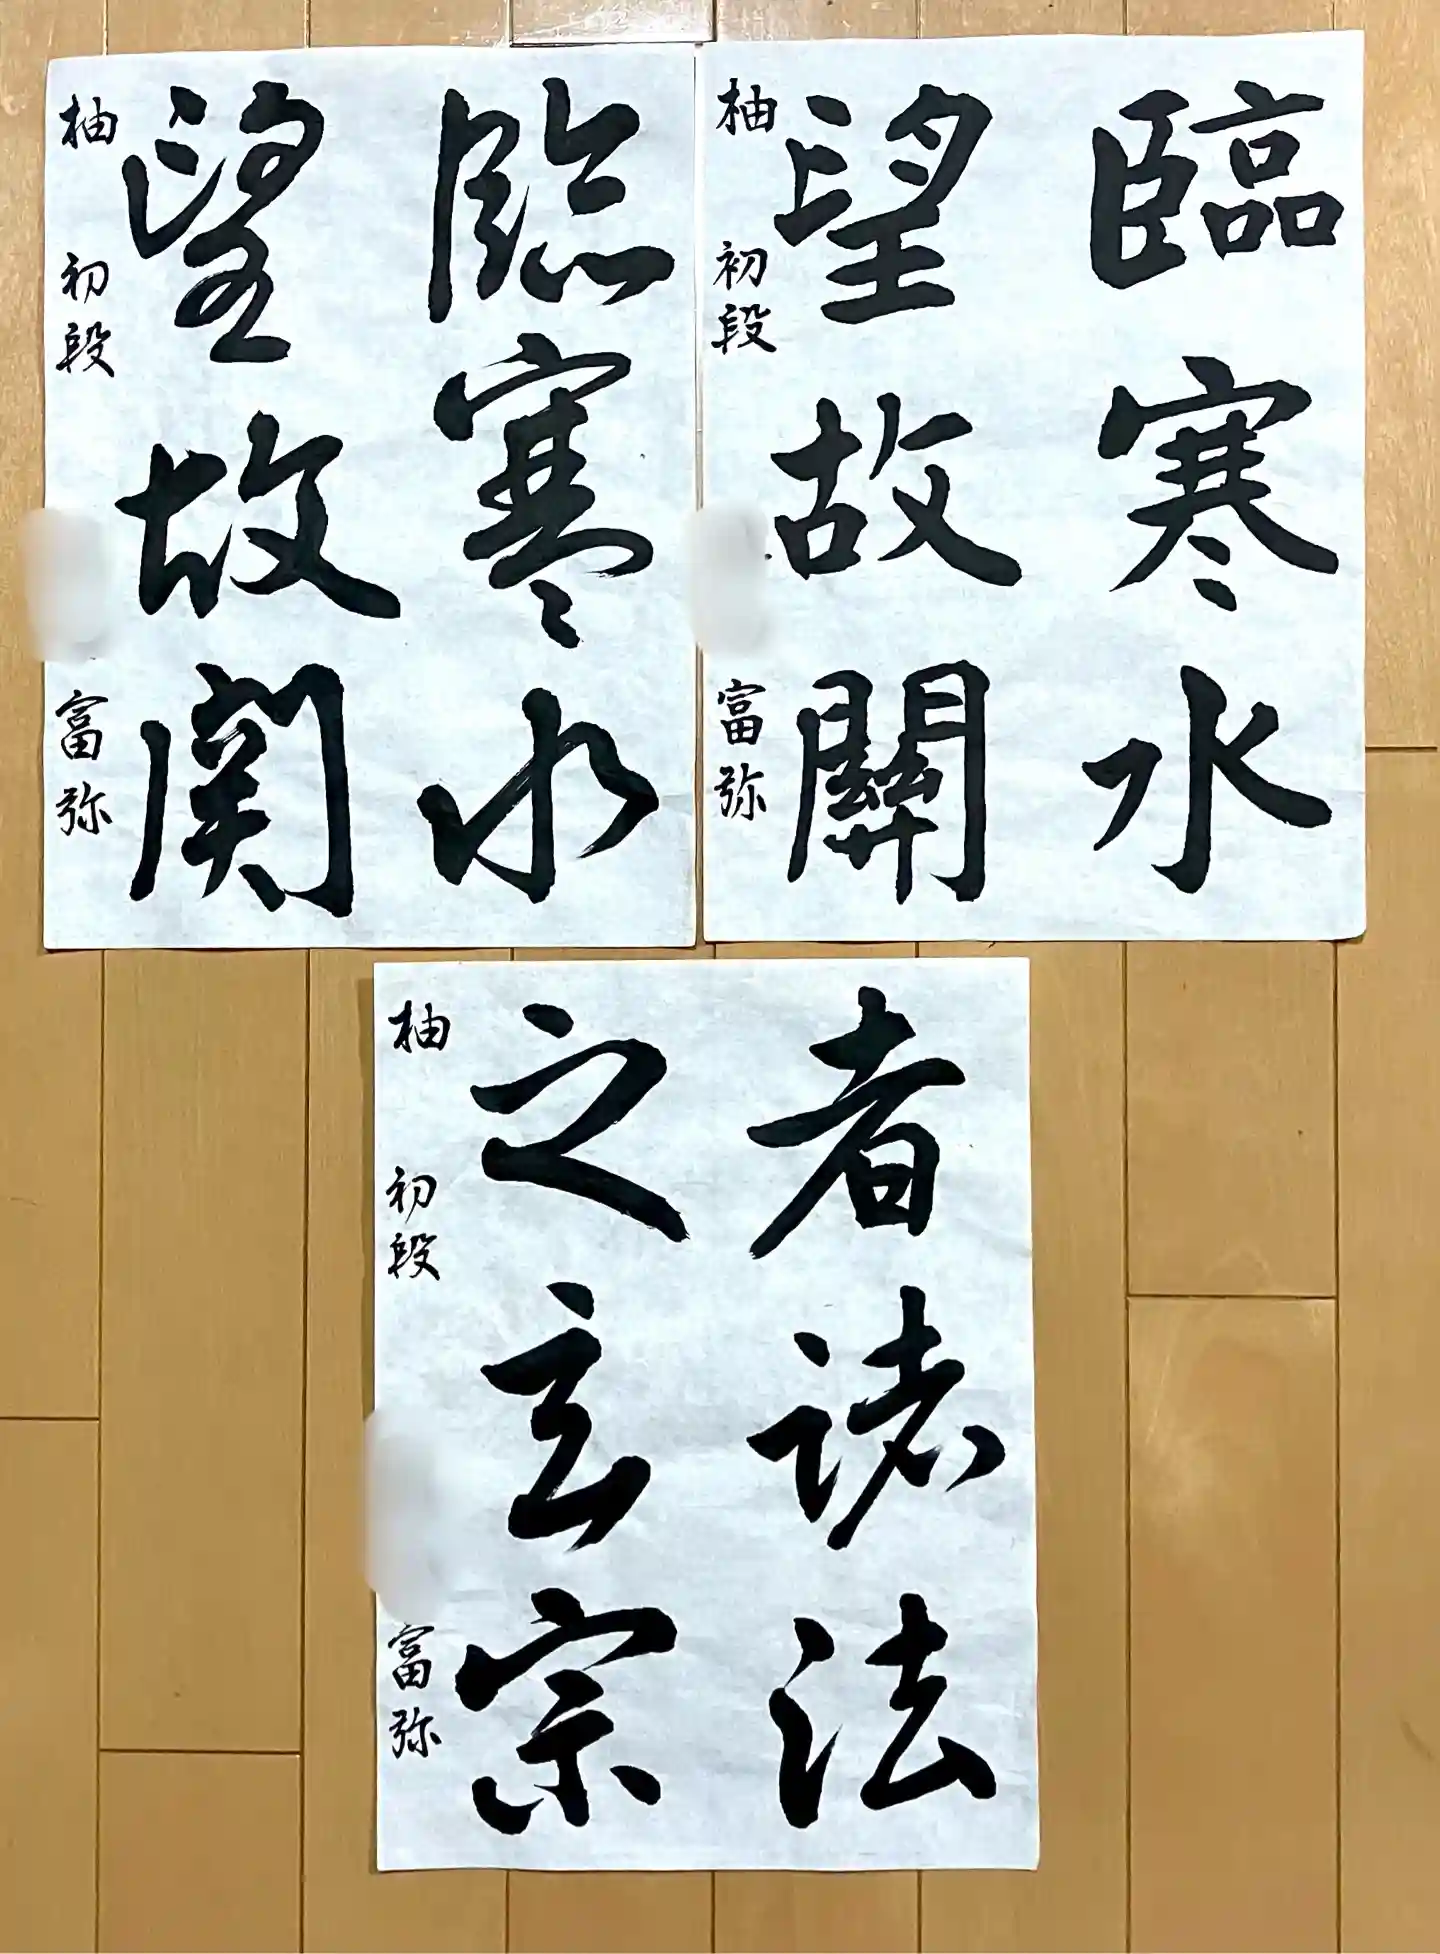 臨寒水
望故關
柚 初段 富弥
臨寒水
望故関
柚 初段 富弥
者諸法
之玄宗
柚 初段 富弥